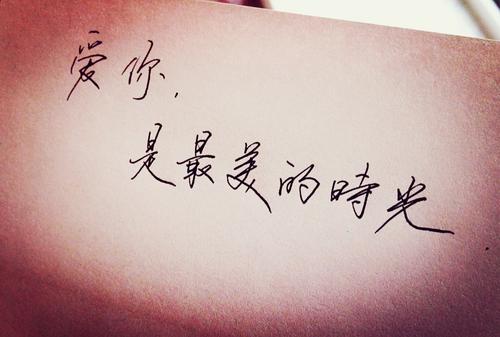 爱你，
是最美的時光